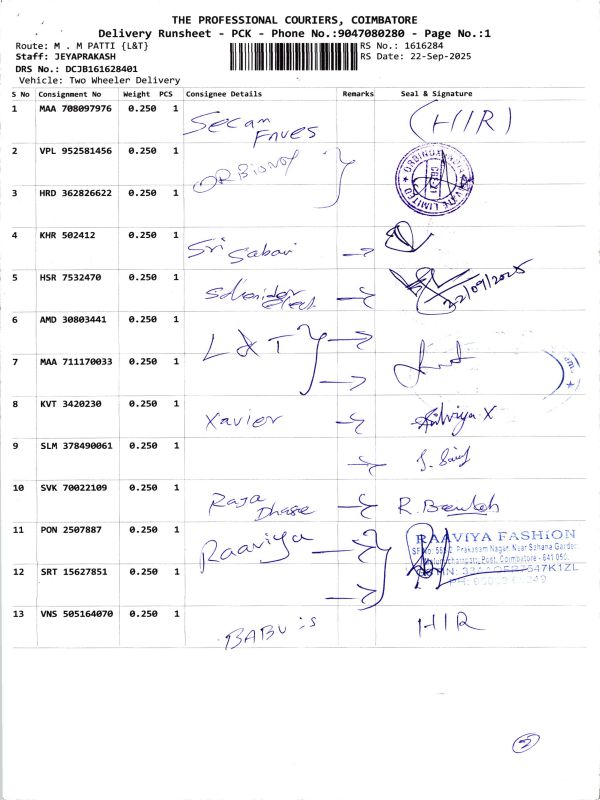 THE PROFESSIONAL COURIERS, COIMBATORE
Delivery Runsheet - PCK - Phone No.:9047080280 - Page No.:1
Route: M . M PATTI {L&T} RS No.: 1616284
Staff: JEYAPRAKASH RS Date: 22-Sep-2025
DRS No.: DCJB161628401
Vehicle: Two Wheeler Delivery
S No Consignment No Weight PCS Consignee Details Remarks Seal & Signature
1 MAA 708097976 0.250 1 (HIR)
2 VPL 952581456 0.250 1
3 HRD 362826622 0.250 1
4 KHR 502412 0.250 1 Sri Sabari
5 HSR 7532470 0.250 1 22/09/2025
6 AMD 30803441 0.250 1 L&T
7 MAA 711170033 0.250 1
8 KVT 3420230 0.250 1 Xavier
9 SLM 378490061 0.250 1
10 SVK 70022109 0.250 1 Raja
11 PON 2507887 0.250 1 Raaviya RAAVIYA FASHION
Prakasam Nagar, Near Sahana Garden
Post, Coimbatore - 641 050.
12 SRT 15627851 0.250 1
13 VNS 505164070 0.250 1 BABU is HIR
2